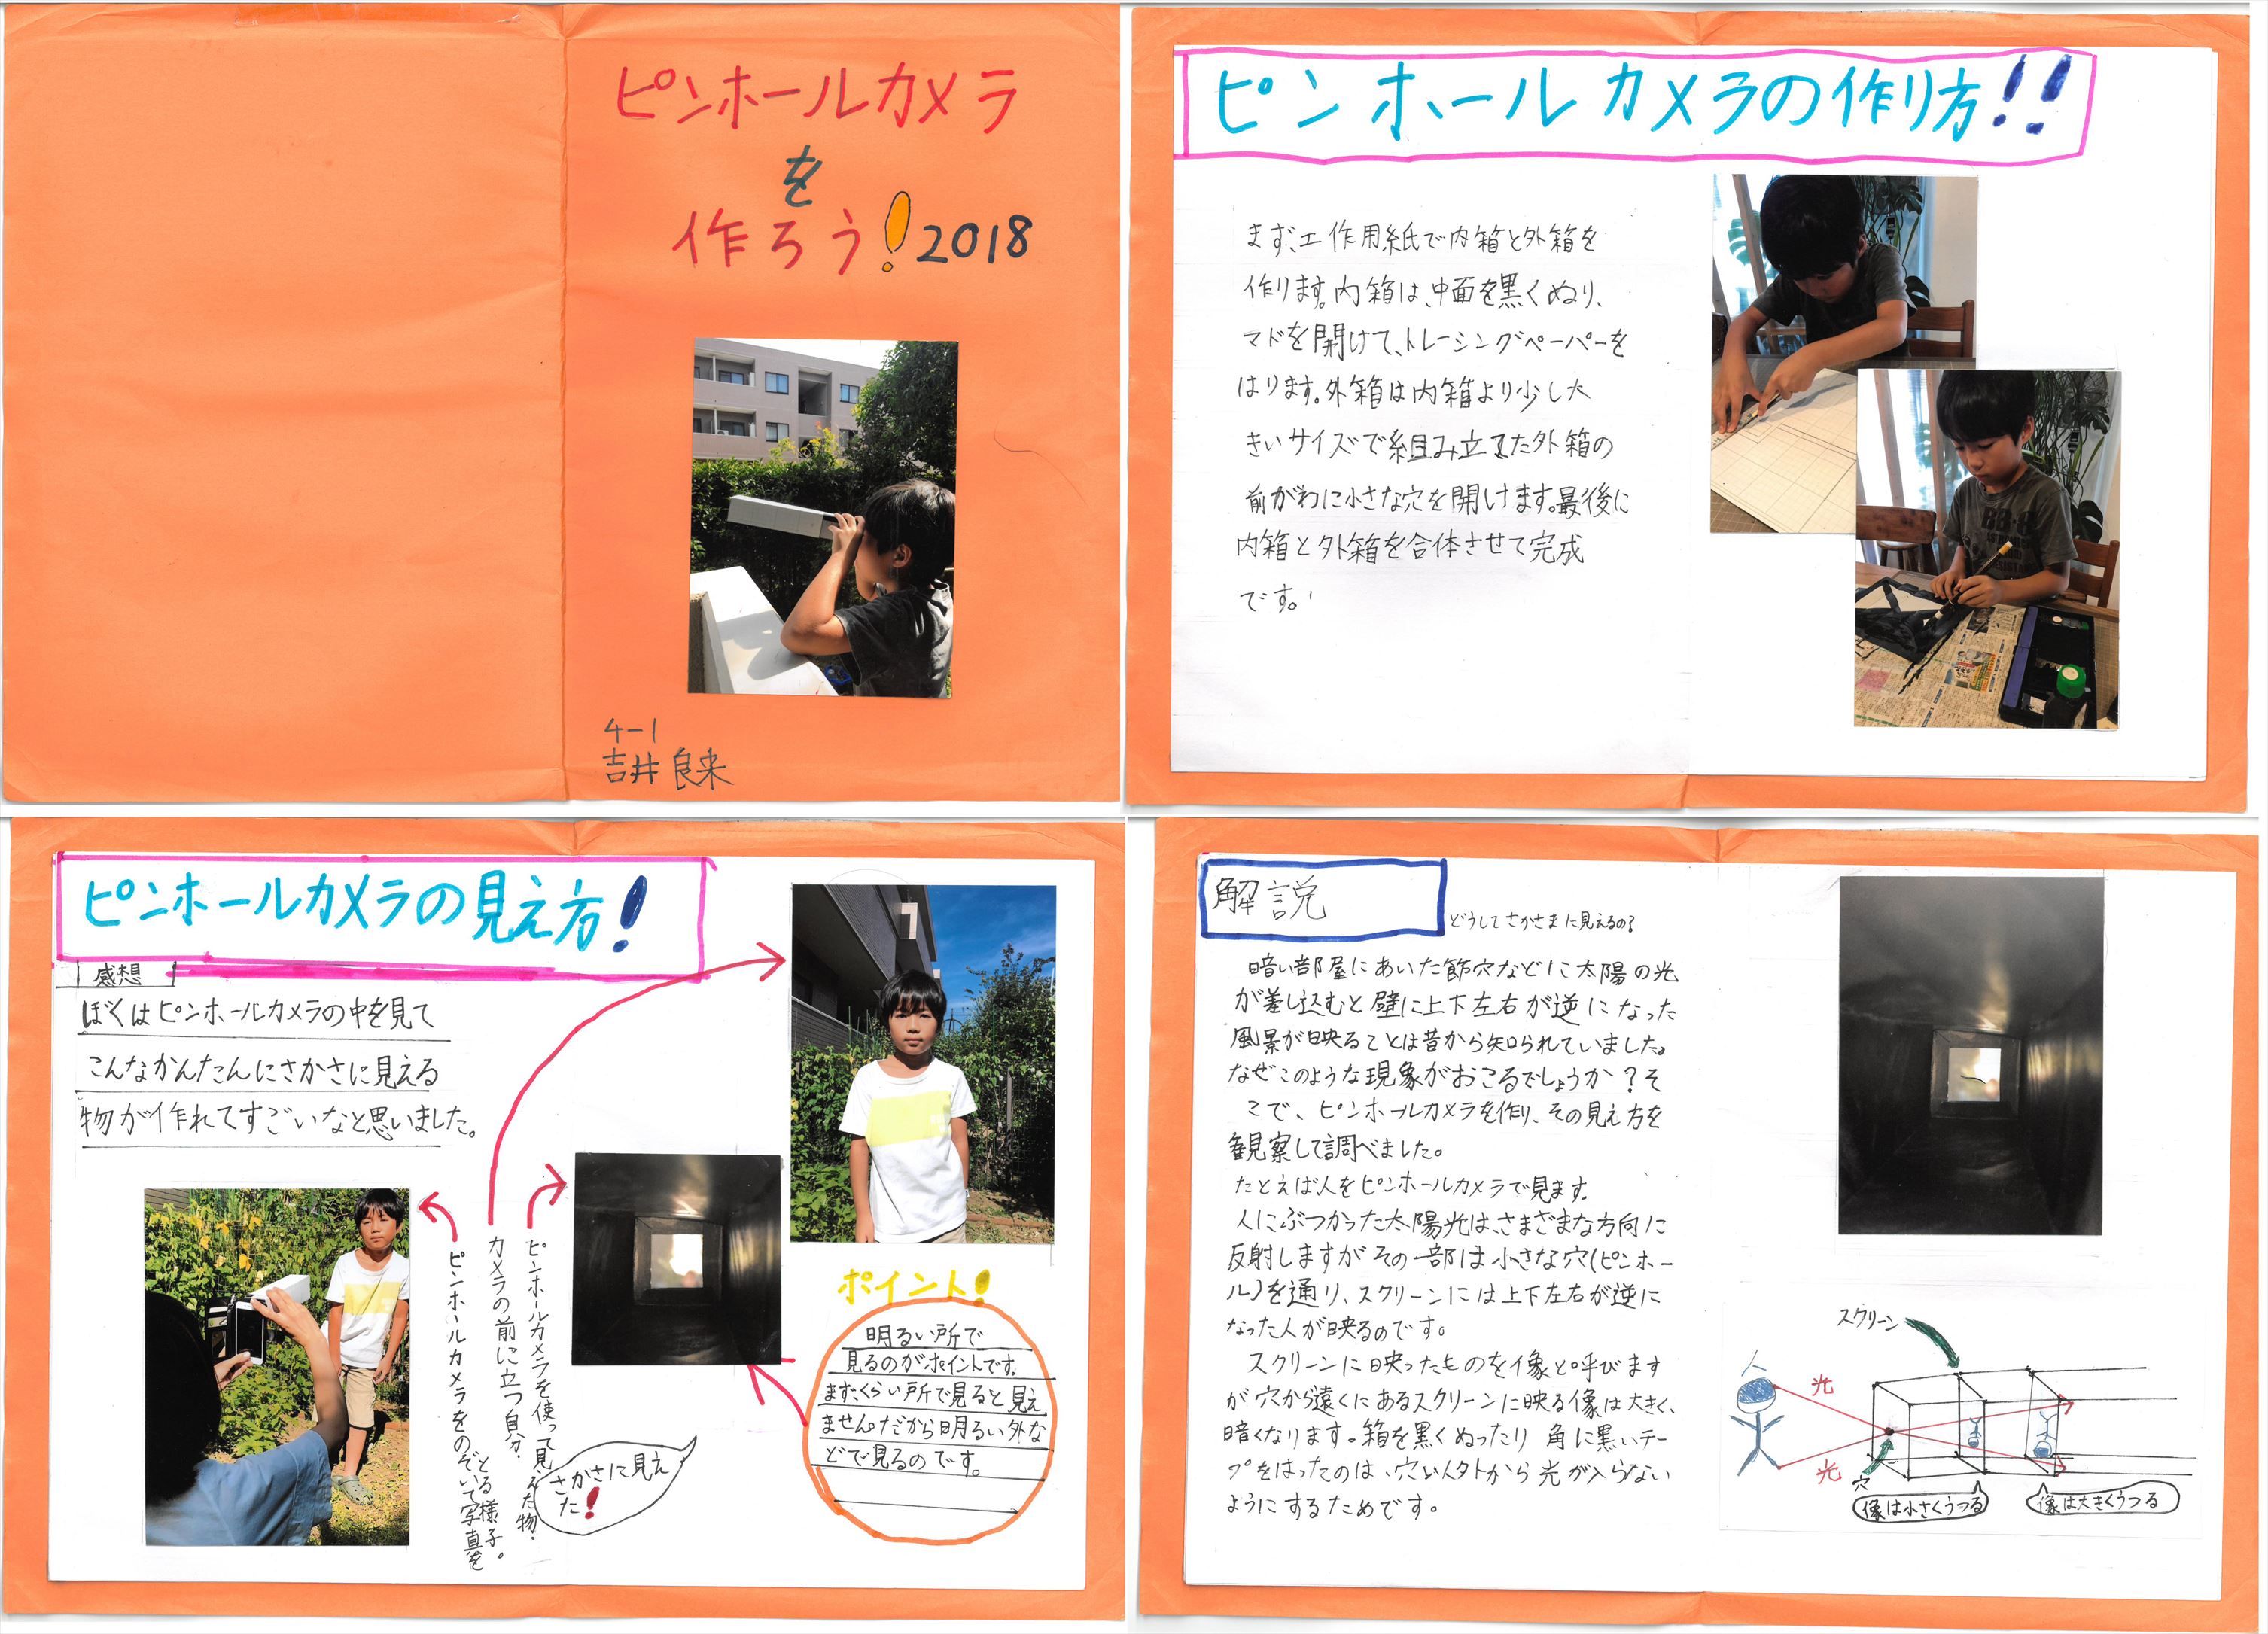 ピンホールカメラ
を
作ろう!2018
4-1
吉井良来
ピンホールカメラの作り方!!
まず、工作用紙で内箱と外箱を
作ります。内箱は、中面を黒くぬり、
マドを開けて、トレーシングペーパーを
はります。外箱は内箱より少し大
きいサイズで組み立てた外箱の
前がわに小さな穴を開けます。最後に
内箱と外箱を合体させて完成
です。
ピンホールカメラの見え方!
感想
ぼくはピンホールカメラの中を見て
こんなかんたんにさかさに見える
物が作れてすごいなと思いました。
7
ピンホールカメラを使って見えた物・
カメラの前に立つ自分・
ピンホールカメラをのぞいて写真を
とる様子。
さかさに見え
た!
ポイント!
明るい所で
見るのがポイントです。
まず、くらい所で見ると見え
ません。だから明るい外な
どで見るのです。
解説
どうしてさかさまに見えるの?
暗い部屋にあいた節穴などに太陽の光
が差し込むと壁に上下左右が逆になった
風景が映ることは昔から知られていました。
なぜこのような現象がおこるでしょうか?そ
こで、ピンホールカメラを作り、その見え方を
観察して調べました。
たとえば人をピンホールカメラで見ます。
人にぶつかった太陽光は、さまざまな方向に
反射しますがその一部は小さな穴(ピンホー
ル)を通り、スクリーンには上下左右が逆に
なった人が映るのです。
スクリーンに映ったものを像と呼びます
が穴から遠くにあるスクリーンに映る像は大きく、
暗くなります。箱を黒くぬったり角に黒いテー
プをはったのは、穴以外から光が入らない
ようにするためです。
スクリーン
光
光
穴
像は小さくうつる
像は大きくうつる